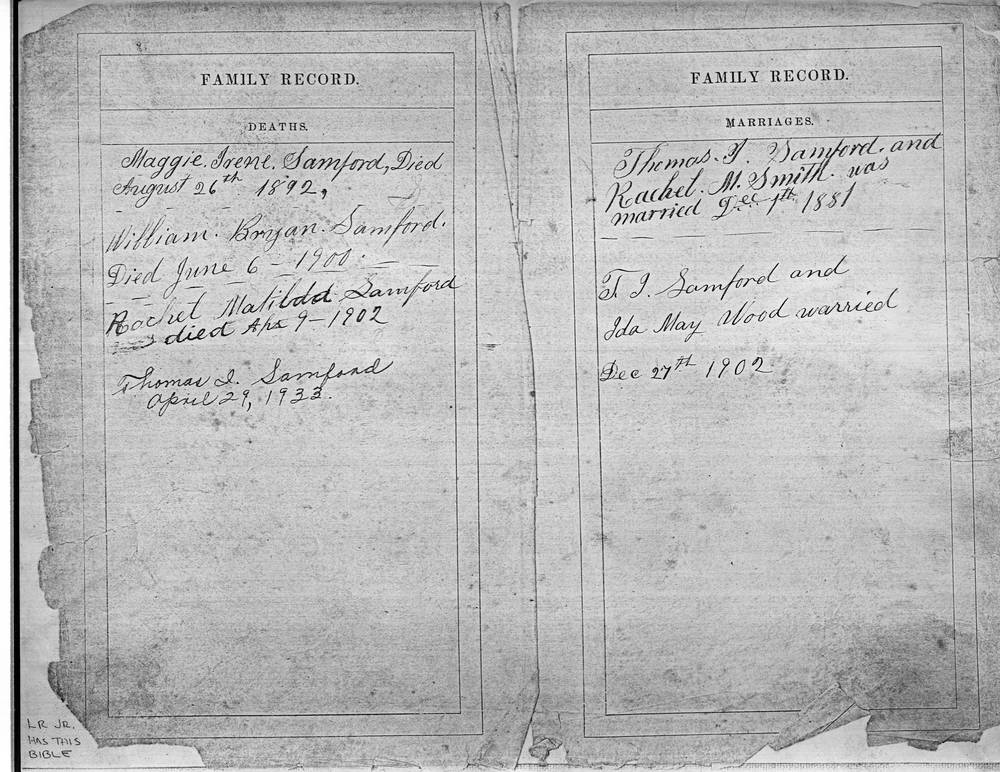 FAMILY RECORD.
DEATHS.
Maggie. Irene. Samford, Died
August 26th 1892,
William. Bryan. Samford.
Died June 6 - 1900.
Rachel Matilda Samford
died Apr 9 - 1902
Thomas I. Samford
April 29, 1933.
FAMILY RECORD.
MARRIAGES.
Thomas. I. Samford. and
Rachel. M. Smith. was
married Dec 1th 1881
T. I. Samford and
Ida May Wood warried
Dec 27th 1902
LR JR.
HAS THIS
BIBLE